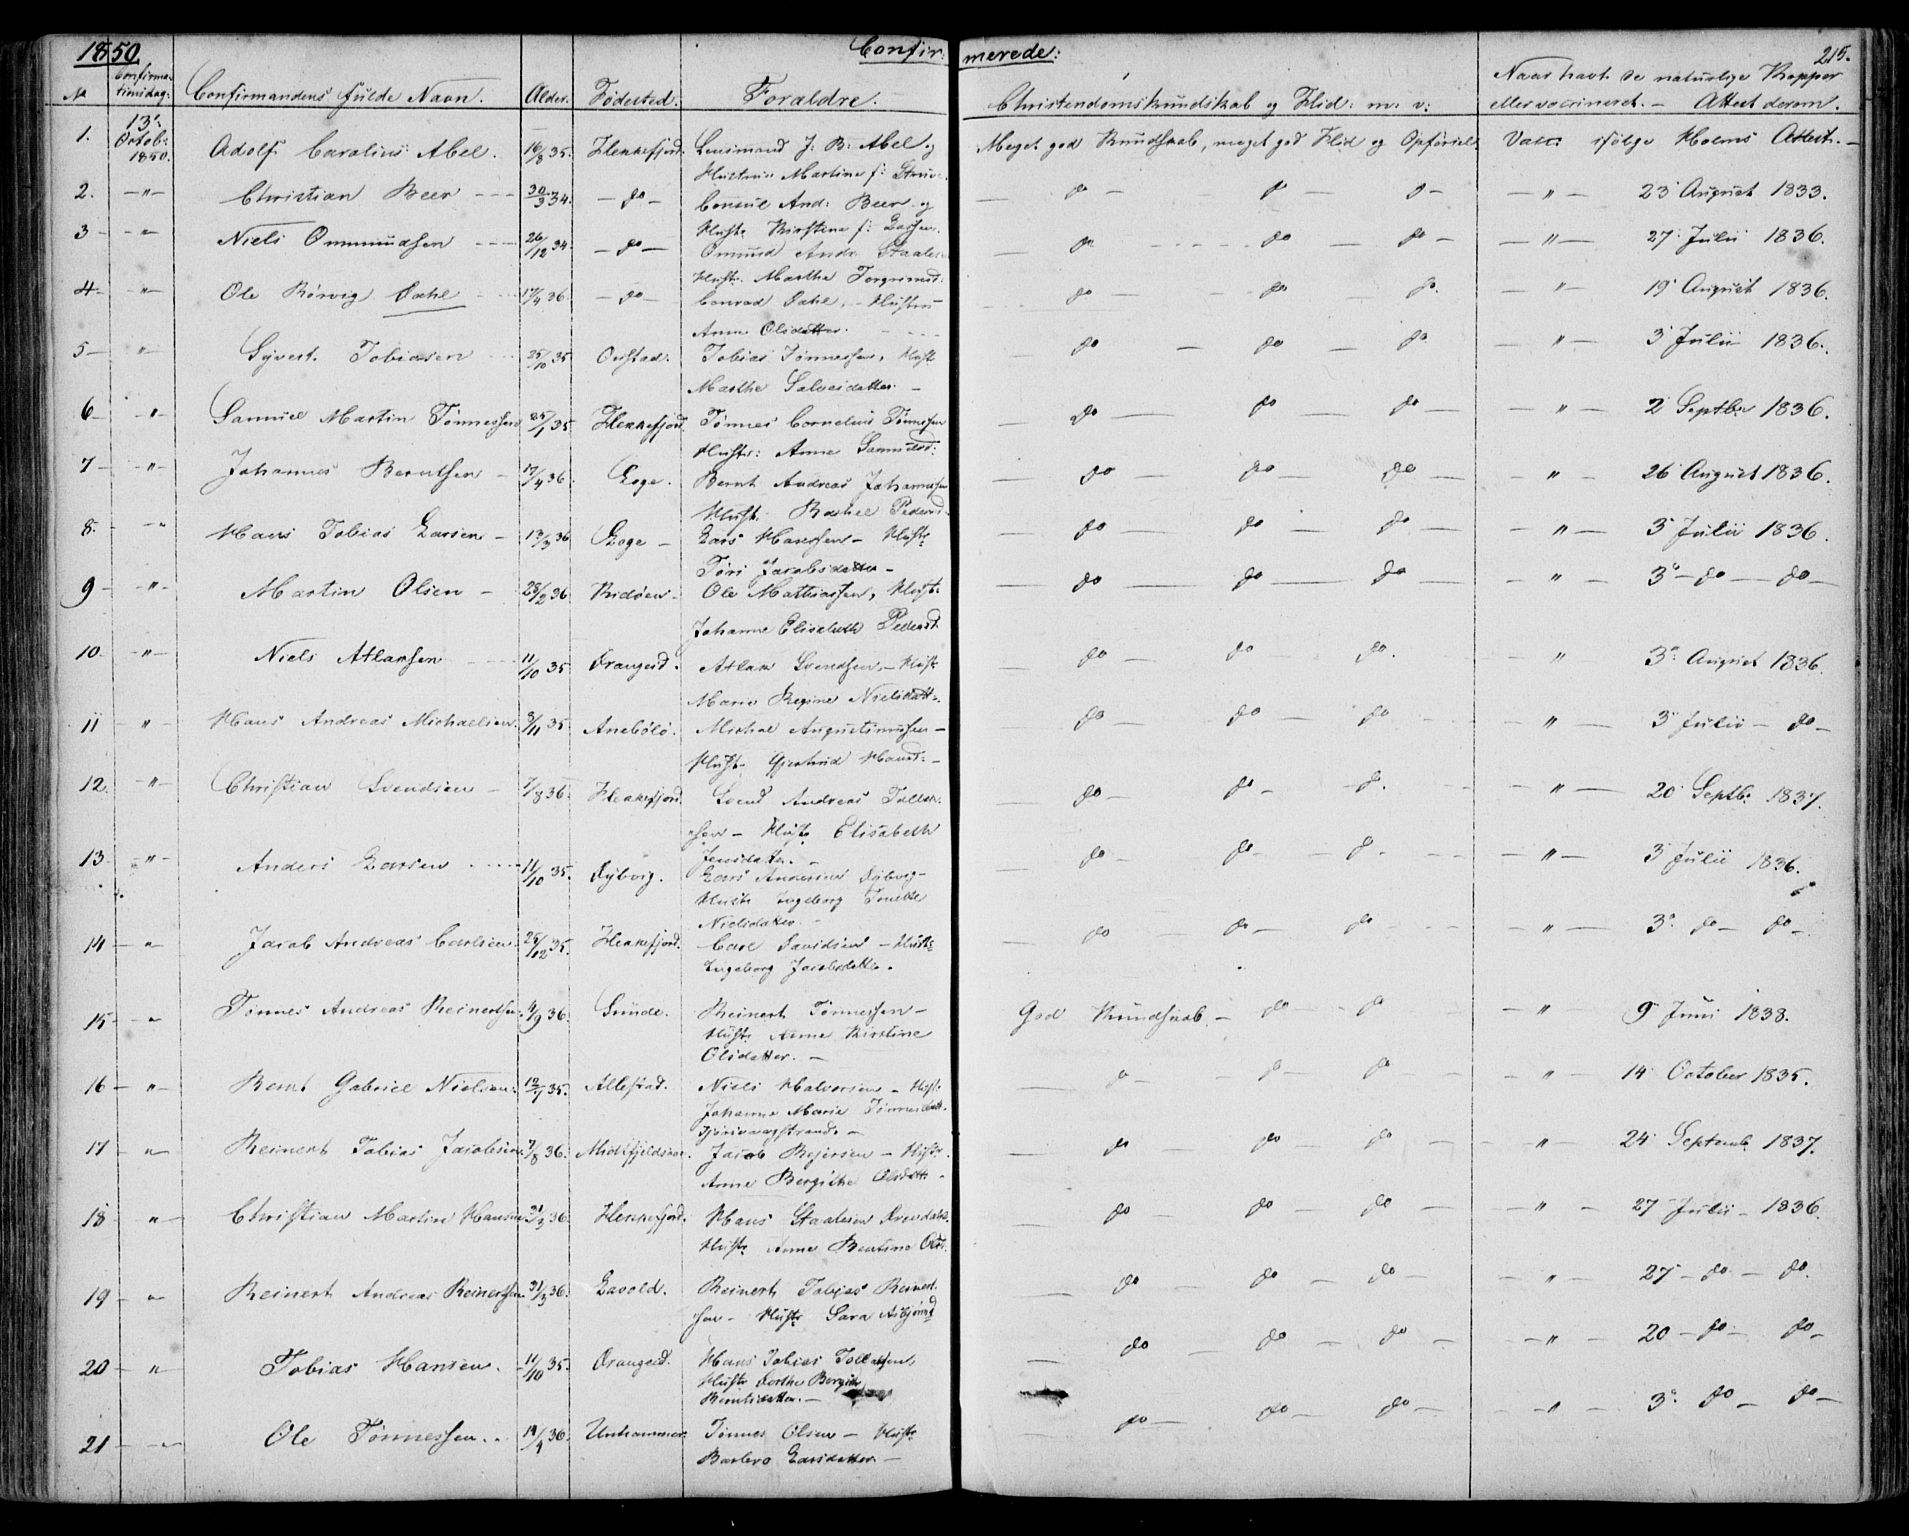 1850.
Confirmerede:
215.
No
Confirmationsdag:
Confirmandens fulde Navn.
Alder.
Fødested.
Forældre.
Christendomskundskab og Flid: m: v:
Naar havt de naturlige Kopper
eller vaccineret. — Attest derom.
1. 13de Octob: 1850. Adolf Carolius Abel. 16/8 35. Flekkefjord. Lensmand J: B: Abel og Meget god Kundskab, meget god Flid og Opførsel. Vacc: ifølge Holms Attest. —
Hustru Martine f:
2. —"— Christian Beer 30/3 34. — do — Consul And: Beer og — do — do — do — —"— 23 August 1833.
Hustr. Kirstine f:
3 —"— Niels Ommundsen 26/12 34 — do — Omund Andr. — do — do — do — —"— 27 Julii 1836.
Hustr. Marthe
4 —"— Ole Rørvig Dahl 17/4 36 — do — Conrad Dahl, — Hustru — do — do — do. —"— 19 August 1836.
Anne Olsdatter.
5 —"— Syvert Tobiasen 25/10 35 Tobias Tønnessen, Hustr — do — do — do —"— 3 Julii 1836.
Marthe Salvesdatter. —
6 —"— Samuel Martin Tønnessen 25/1 35 Flekkefjord. Tønnes Cornelius Tønnesen — do — do — do — —"— 2 Septbr 1836.
Hustr: Anne Samuelsd:
7 —"— Johannes Berntsen — 17/4 36. Loge. Bernt Andreas Johannesen — do — do — do — —"— 26 August 1836.
Hustr. Rachel Pedersd.
8. —"— Hans Tobias Larsen — 13/3 36 Loge — Lars Hanssen — Hustr — do — do — do — —"— 3 Julii 1836.
Tøri Jacobsdatter —
9 —"— Martin Olsen — 28/2 36 Ole Mathiassen, Hustr. — do — do — do — —"— 3 — do — do —
Johanne Elisabeth Pedersd.
10 —"— Niels Atlaksen 11/10 35 Drangeid. Atlak Svendsen, — Hustr — do — do — do. —"— 3 August 1836.
Marie Regine Nielsdatt.
11 —"— Hans Andreas Michaelsen. 8/11 35. Anebølø. Michel Augustinussen — — do — do — do —"— 3 Julii — do —
Hustr. Gjertrud Hansd. —
12. —"— Christian Svendsen — 7/8 36. Flekkefjord. Svend Andreas — do — do — d. —"— 20 Septb. 1837.
sen — Hustr. Elisabeth
Jensdatter. —
13 —"— Anders Larsen 11/10 35. Dybvig. Lars Andersen Dybvig — — do — do — d. —"— 3 Julii 1836.
Hustr Ingeborg
Nielsdatter. —
14 —"— Jacob Andreas Carlsen 25/12 35. Flekkefjord. Carl Davidsen — Hustr — do — do — do —"— 3. do — do —
Ingeborg Jacobsdatter.
15 —"— Tønnes Andreas Reinertsen. 4/9 36. Sunde. Reinert Tønnessen — God Kundskab — do — do —"— 9 Juni 1838.
Hustr Anne Kirstine
Olsdatter. —
16 —"— Bernt Gabriel Nielsen. 35. Niels Halvorsen — Hustr — do — do — do —"— 14 October 1835.
Johanne Marie Tønnesdatt.
17 —"— Reinert Tobias Jacobsen 7/8 36. Jacob — Hustr. — do — do — do —"— 24 Septemb. 1837.
Anne Bergithe Olsdatt. —
18 —"— Christian Martin Hansen 31/3 36. Flekkefjord. Hans Staalesen — do — do — do —"— 27 Julii — 1836.
Hustr Anne Bertine
19 —"— Reinert Andreas Reinertsen 31/3 36. Lavold. Reinert Tobias Reinert — do — do — do — —"— 27 — do — do.
sen — Hustr Sara
20 —"— Tobias Hansen. 11/10 35. Drangeid. Hans Tobias — do — do — do — —"— 20 — do — do —
Hustr Dorthe
Berntsdatter. —
21 —"— Ole Tønnessen. 36. Unhammer Tønnes Olsen — Hustr — do — do — do — —"— 3. do — do —
Barbro Larsdatter —